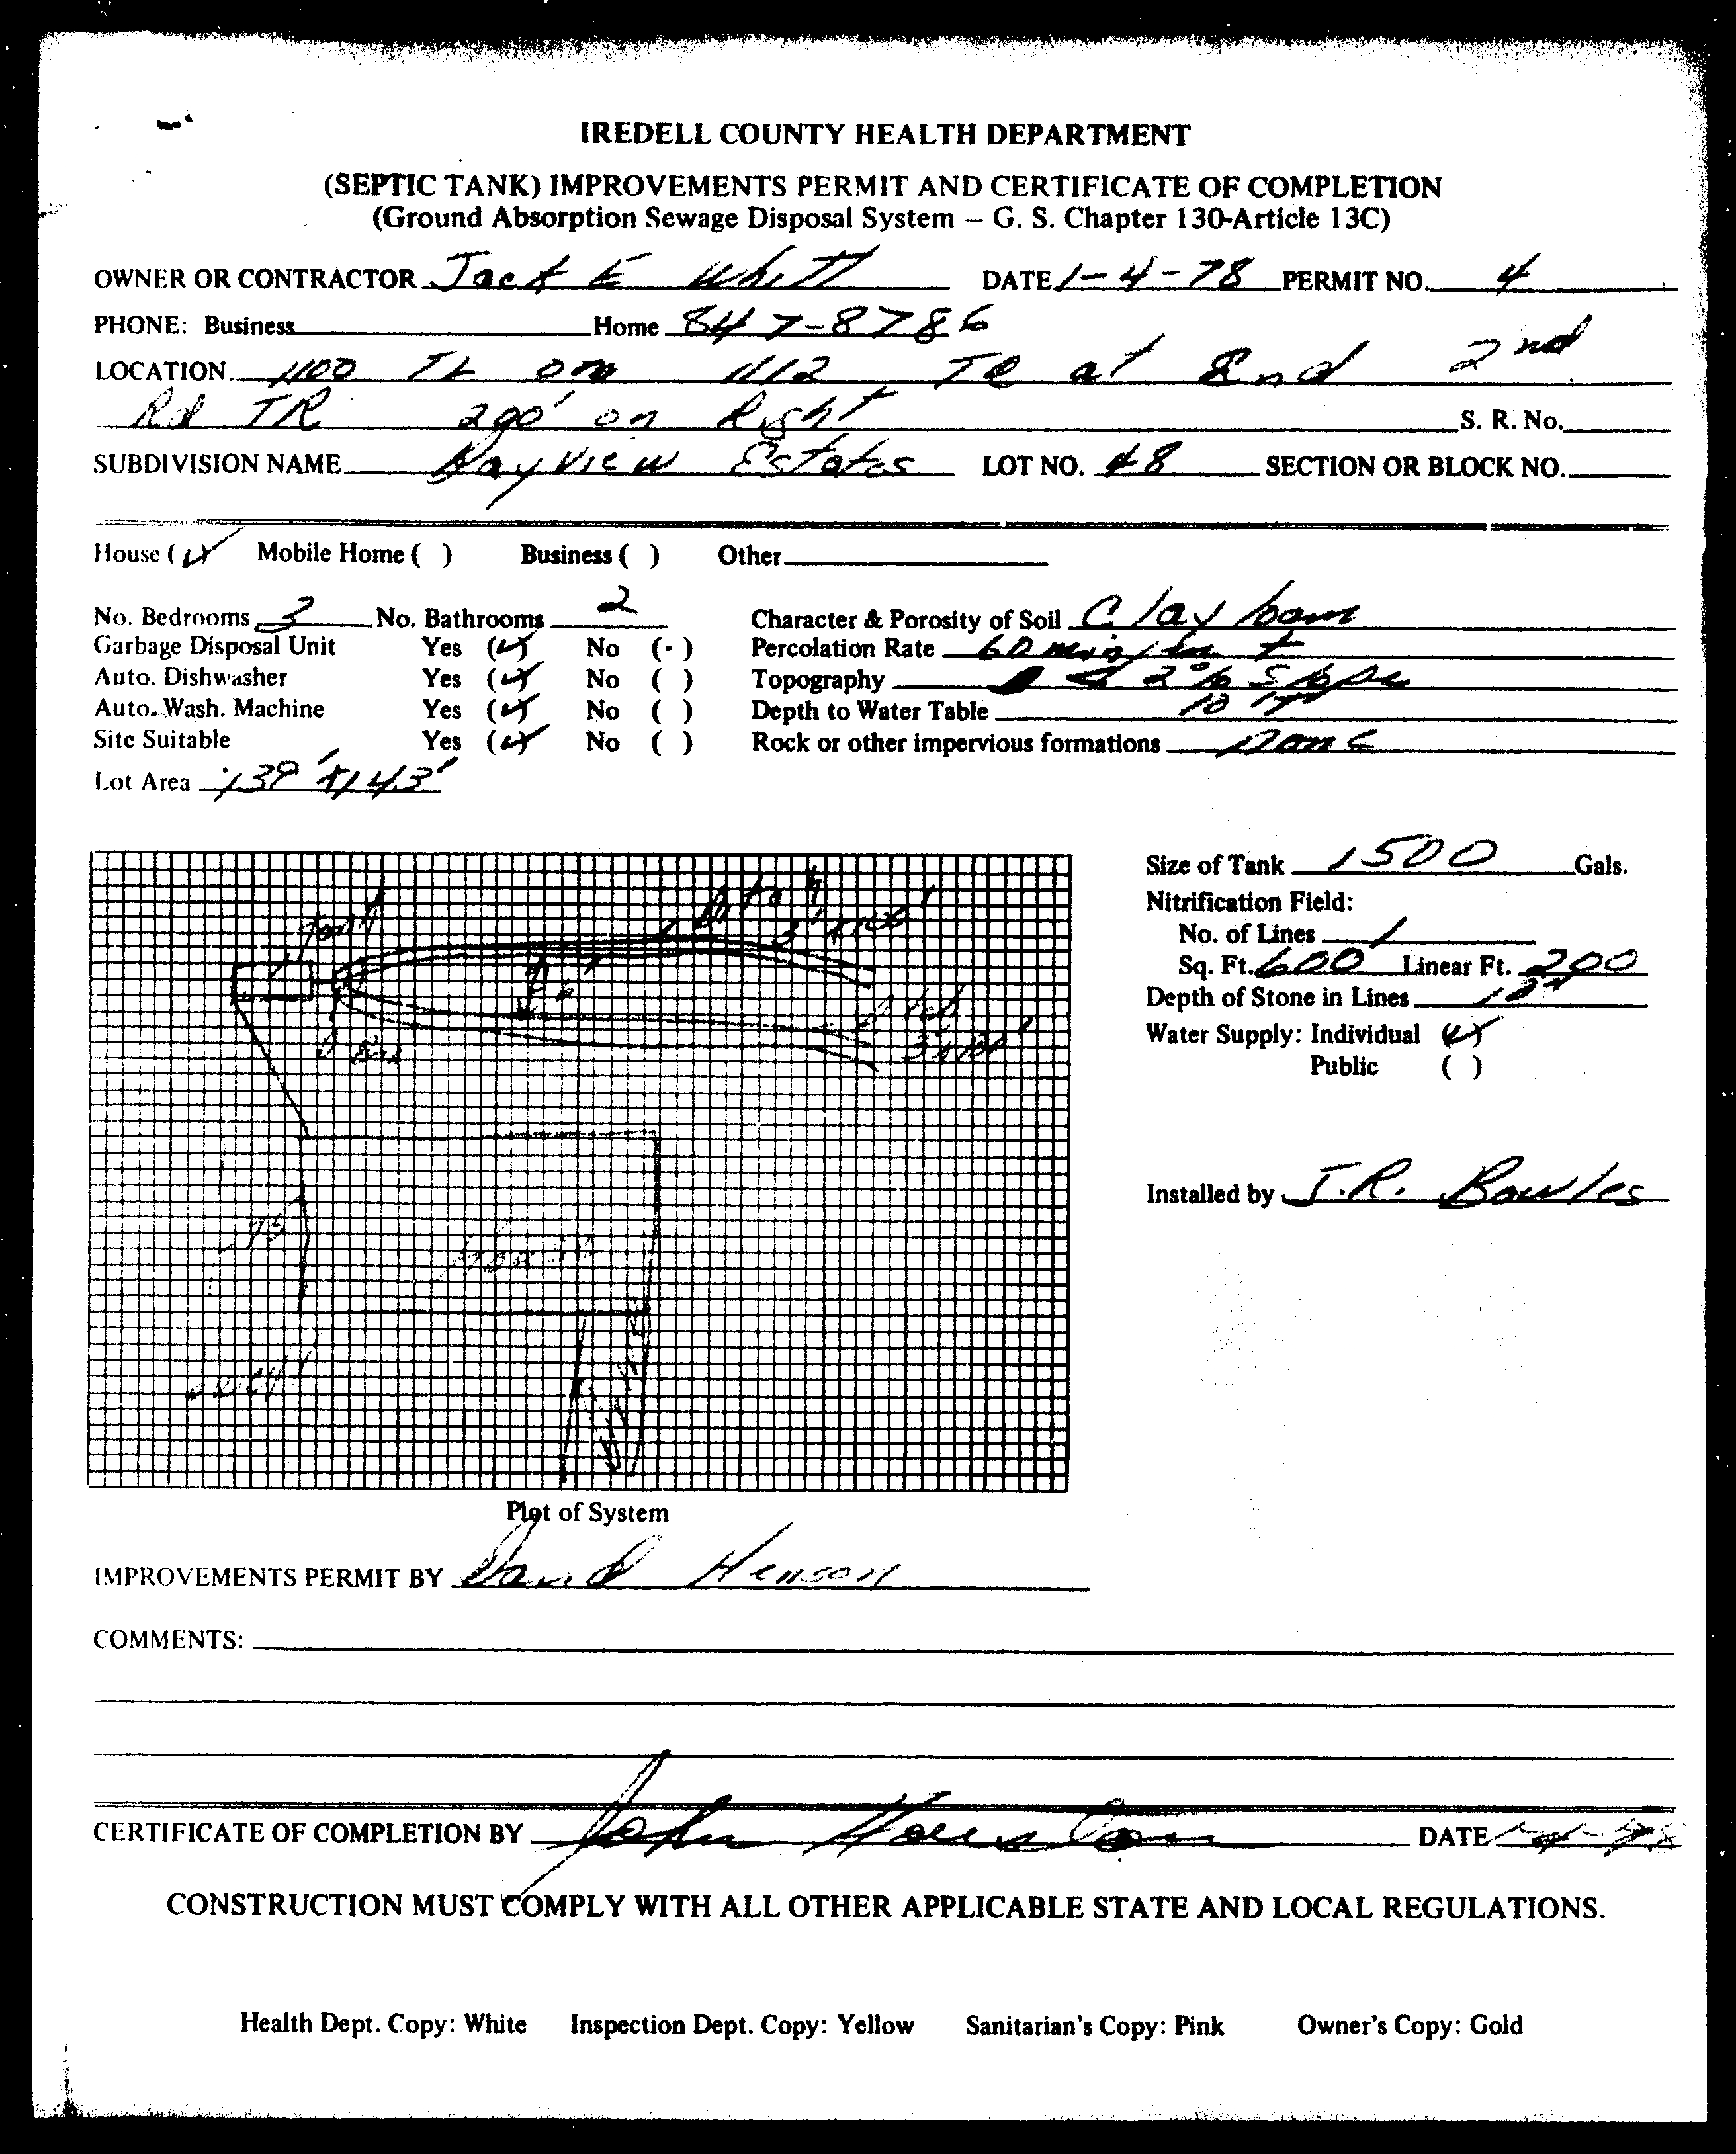 IREDELL COUNTY HEALTH DEPARTMENT
(SEPTIC TANK) IMPROVEMENTS PERMIT AND CERTIFICATE OF COMPLETION
(Ground Absorption Sewage Disposal System – G. S. Chapter 130-Article 13C)
OWNER OR CONTRACTOR Jack E Whitt DATE 1-4-78 PERMIT NO. 4
PHONE: Business Home 847-8786
LOCATION 1100 TL on 1112 at End 2nd
Rd TR 200' on Right S. R. No.
SUBDIVISION NAME Nayview Estates LOT NO. 48 SECTION OR BLOCK NO.
House (✓) Mobile Home ( ) Business ( ) Other
No. Bedrooms 3 No. Bathrooms 2 Character & Porosity of Soil Clay loam
Garbage Disposal Unit Yes (✓) No ( ) Percolation Rate 60 min/in +
Auto. Dishwasher Yes (✓) No ( ) Topography 2% Slope
Auto. Wash. Machine Yes (✓) No ( ) Depth to Water Table 10
Site Suitable Yes (✓) No ( ) Rock or other impervious formations None
Lot Area 139' x 143'
Size of Tank 1500 Gals.
Nitrification Field:
No. of Lines 1
Sq. Ft. 600 Linear Ft. 200
Depth of Stone in Lines
Water Supply: Individual (✓)
Public ( )
Installed by J.R. Bowles
Tank
3' x 100'
D Box
3' x 100'
75
House
Drive
Plot of System
IMPROVEMENTS PERMIT BY David Henson
COMMENTS:
CERTIFICATE OF COMPLETION BY John Houston DATE
CONSTRUCTION MUST COMPLY WITH ALL OTHER APPLICABLE STATE AND LOCAL REGULATIONS.
Health Dept. Copy: White Inspection Dept. Copy: Yellow Sanitarian's Copy: Pink Owner's Copy: Gold